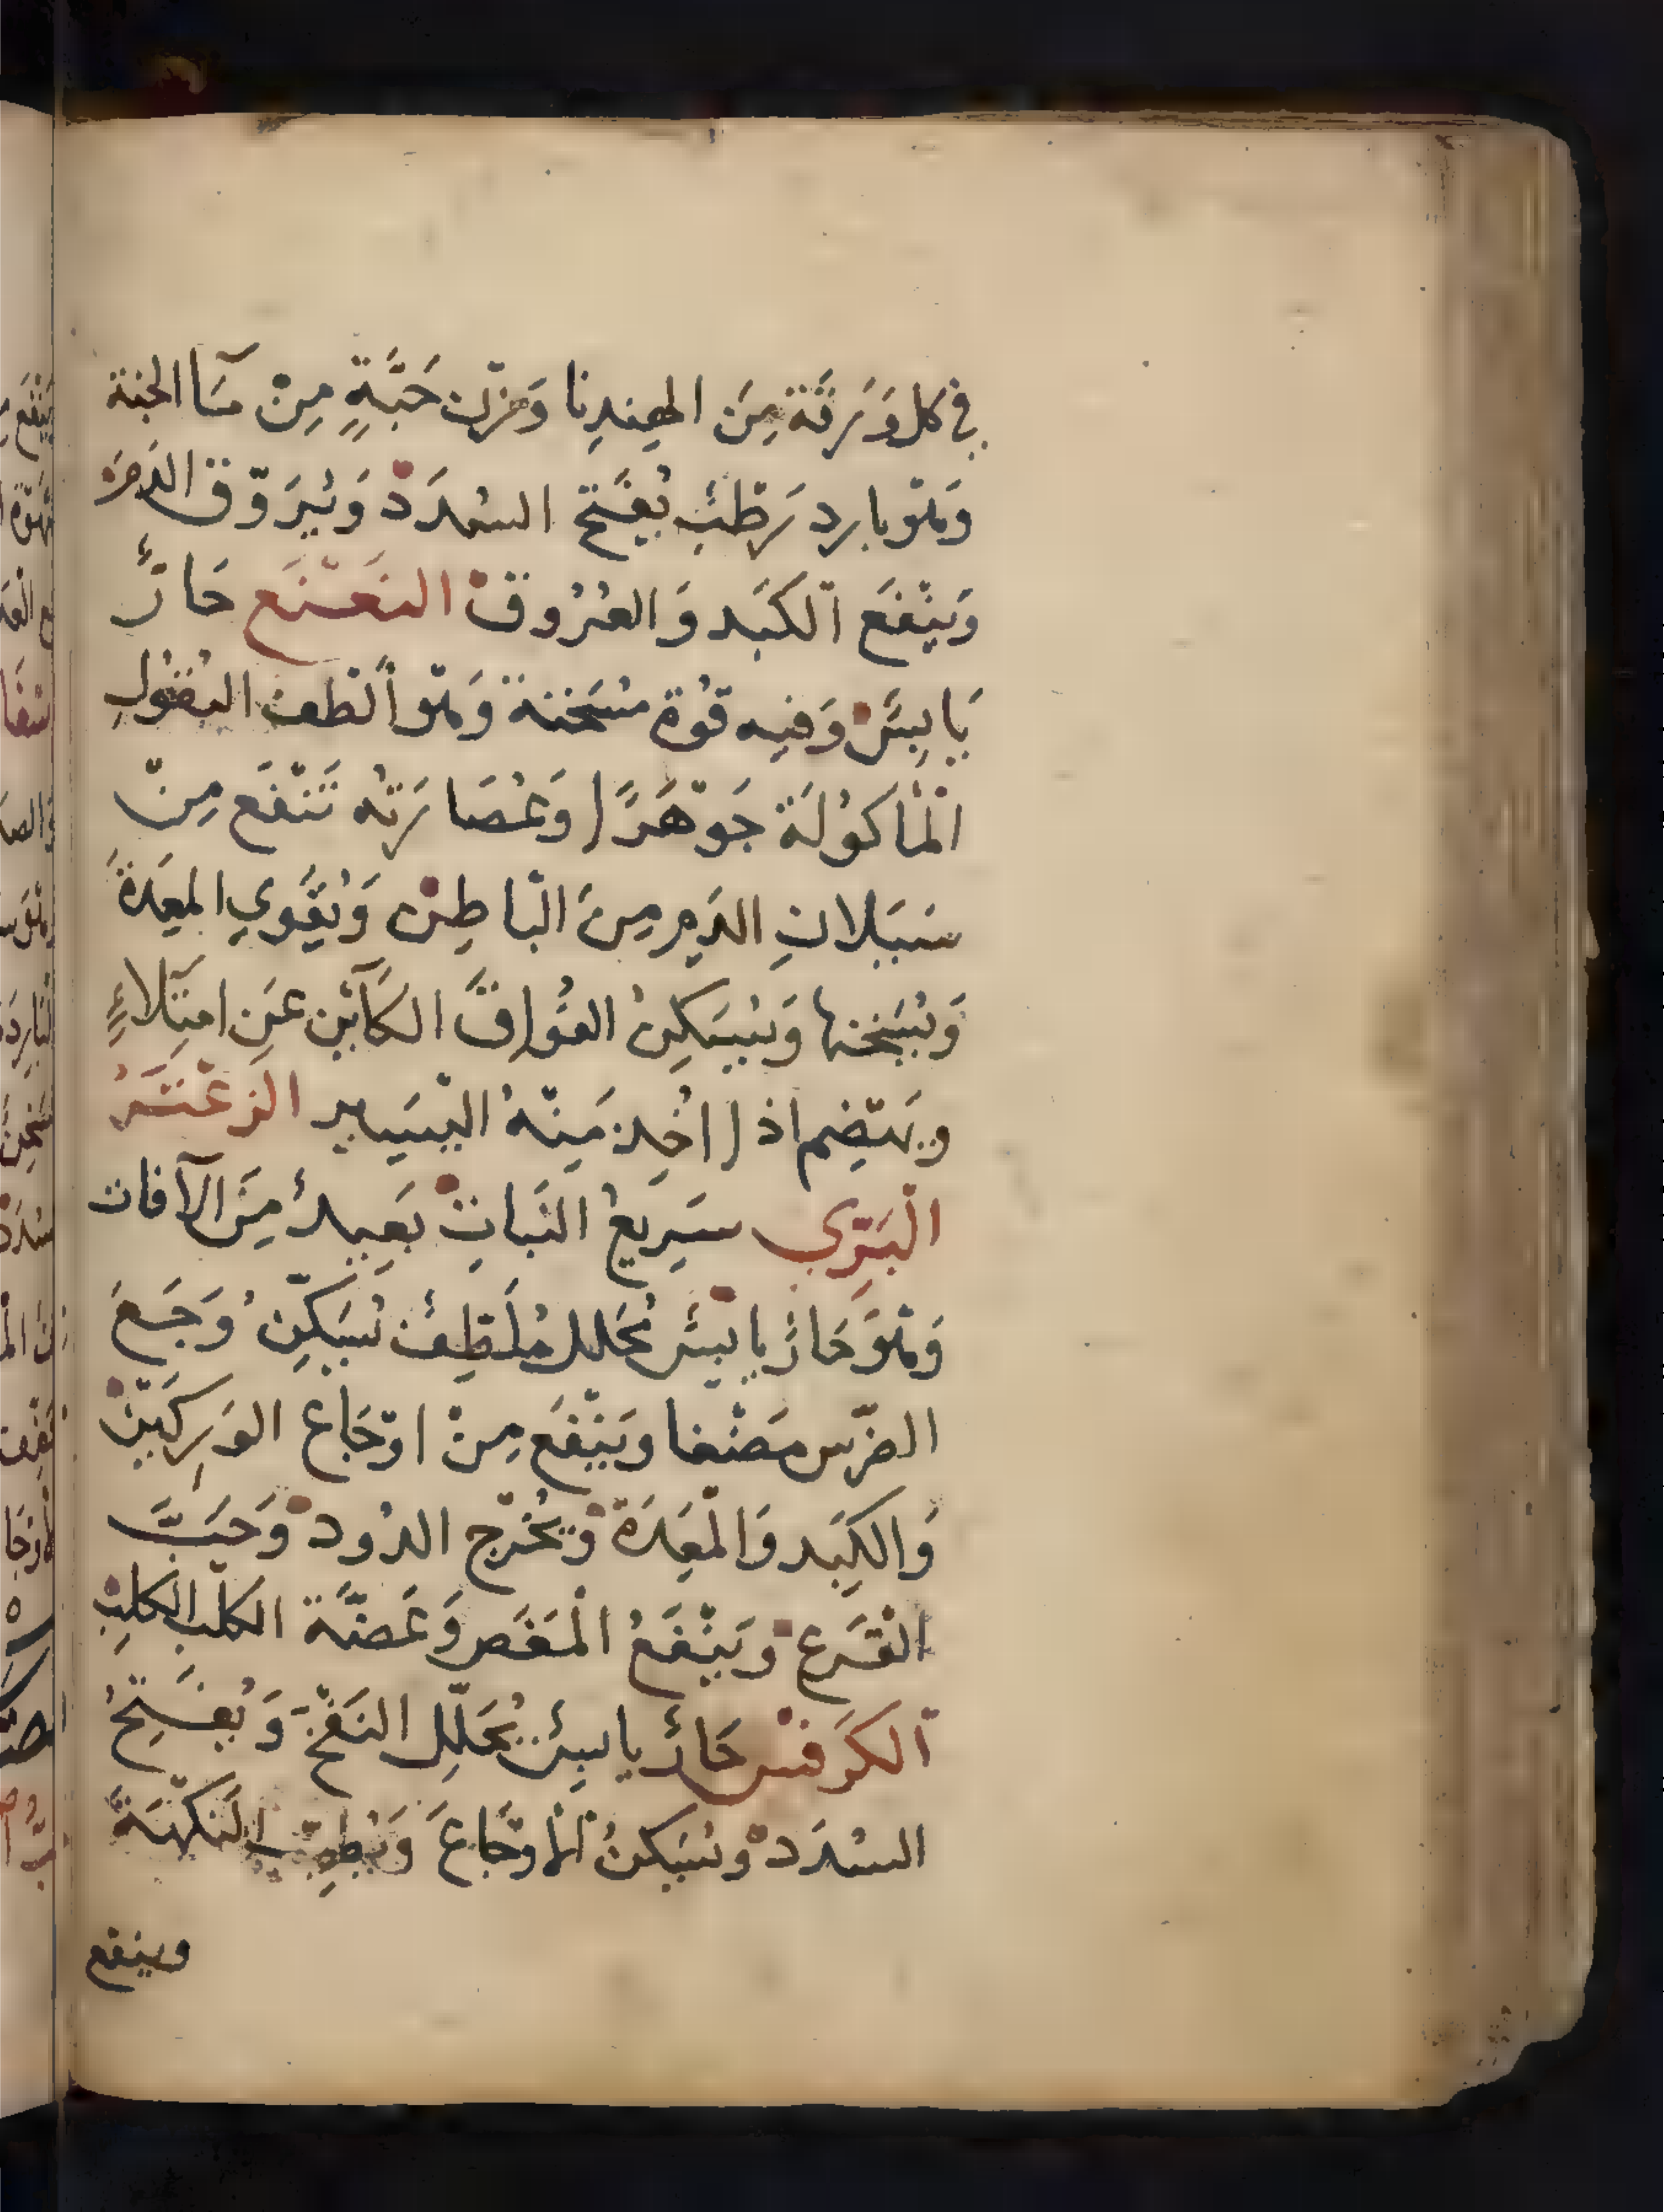 في كل وَرَقَة مِنَ الهِندِبا وَزْن حَبَّةٍ مِنْ مَآ الجنة
وَهْوَ بارد رَطْبٌ يُفَتّح السُدَدْ وَيُرَوّق الدَم
وَيَنْفَع الكَبَد وَالعُرُوقْ النَعْنَع حَارٌّ
يَابِسٌ وَفيه قُوْة مُسَخنة وَهْو ألْطف البُقُولِ
الْمأكُولَة جَوْهَرًا وَعُصَارَتُه تَنْفَع مِنْ
سَيَلانِ الدَمِ مِنَ الْبَاطِنْ وَيُقَوي المعِدةَ
وَيُسَخنها وَيُسَكِنُ الفُوَاقَ الكَآئِن عَنِ امتِلَاءٍ
ويَهْضِم اذا اُخِذ مِنْهُ اليْسَير الزَعْتَرُ
الْبَرّي سَرِيعُ النَبَاتْ بَعِيدٌ مِنَ الآفات
وَهْوَ حَارٌ يابْسٌ مُحَلل مُلَطِفٌ يُسَكِّنُ وَجَعَ
الضّرس مَضْغا وَيَنْفَع مِنْ اوْجَاع الوَرِكَيْنْ
وَالكِبَد وَالْمعِدَةْ وَيُخْرج الدُودْ وَحَبَّ
القَرع وَيَنْفَعُ الْمَغَص وَعَضَّة الكَلْب الكَلِبْ
الكَرَفْس حَارٌ يابِسٌ يُحَلّلِ النَفْخَ وَيُفَتِحُ
السُدَدْ وَيُسَكِنُ الأوْجَاعَ وَيُطِيّب النَكْهَةَ
وينفع